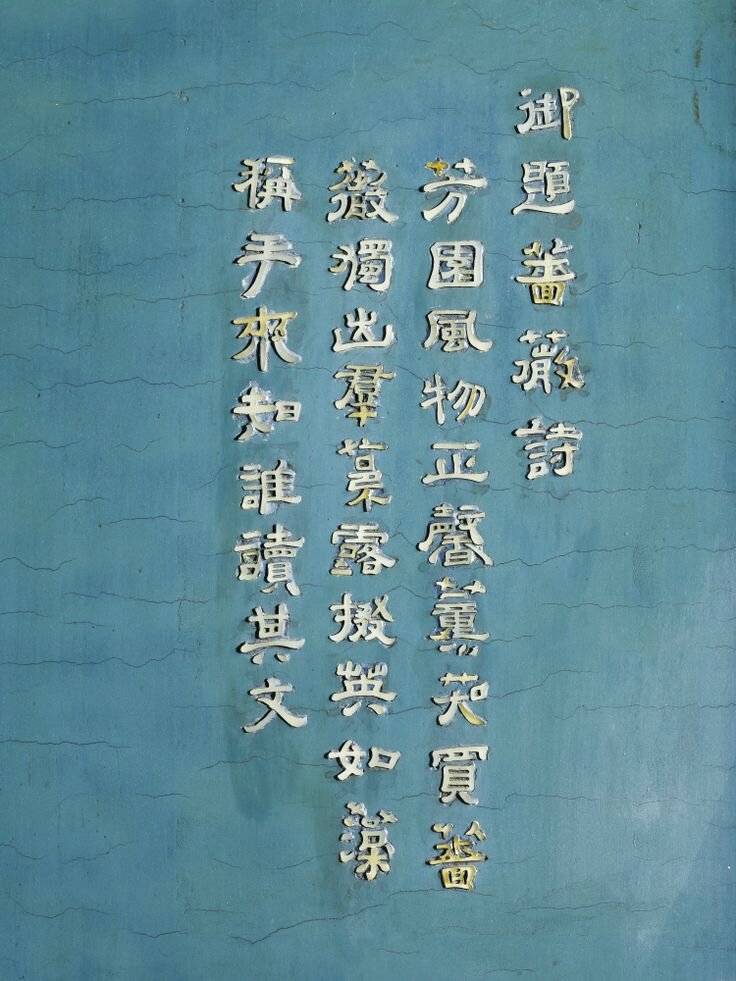 御題薔薇詩
芳園風物正馨薰買薔
薇獨出羣露掇英如藻
稱手來知誰讀其文